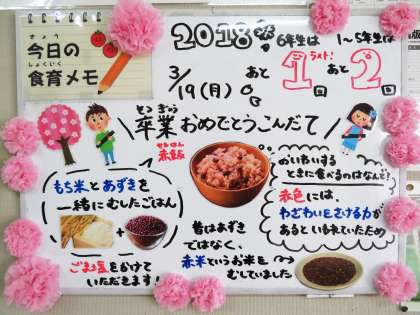 きょう
今日の
しょくいく
食育メモ
2018年
3/19(月)
6年生は
あと
ラスト!
1回
1~5年生は
あと
2回
そつぎょう
卒業おめでとうこんだて
せきはん
赤飯
もち米とあずきを
一緒にむしたごはん
ごま塩をかけて
いただきます!
昔はあずき
ではなく、
赤米というお米を
むしていました
おいわいする
ときに食べるのはなんで?
赤色には、
わざわいをさける力が
あるといわれていたため